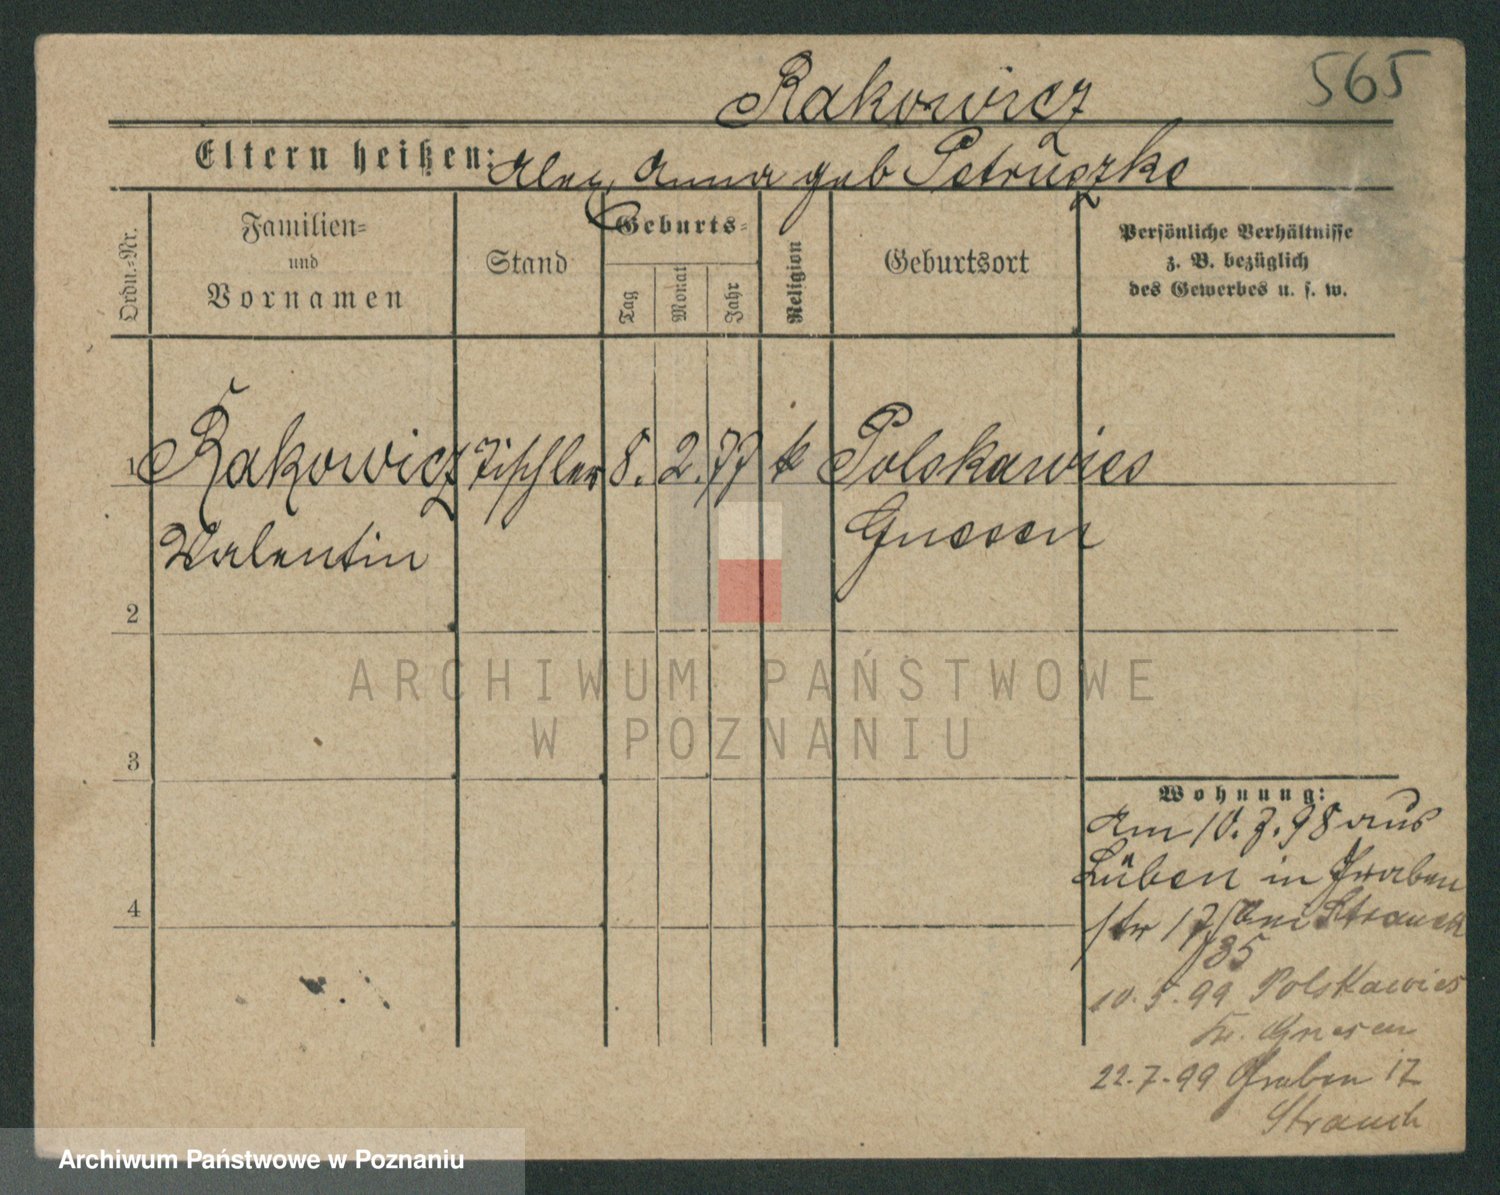 565
Rakowicz
Eltern heißen: Alex, Anna geb Petruszke
Ordn.-Nr.
Familien-
und
Vornamen
Stand
Geburts-
Tag
Monat
Jahr
Religion
Geburtsort
Persönliche Verhältnisse
z. B. bezüglich
des Gewerbes u. s. w.
1 Rakowicz Tischler 8. 2. 77 k Polskawies
Valentin Gnesen
2
3
4
ARCHIWUM PAŃSTWOWE
W POZNANIU
Wohnung:
Am 10. 7. 98 aus
Lüben in Graben
str 17 bei Strauch
10. 5. 99 Polskawies
Kr. Gnesen
22-7-99 Graben 17
Strauch
Archiwum Państwowe w Poznaniu